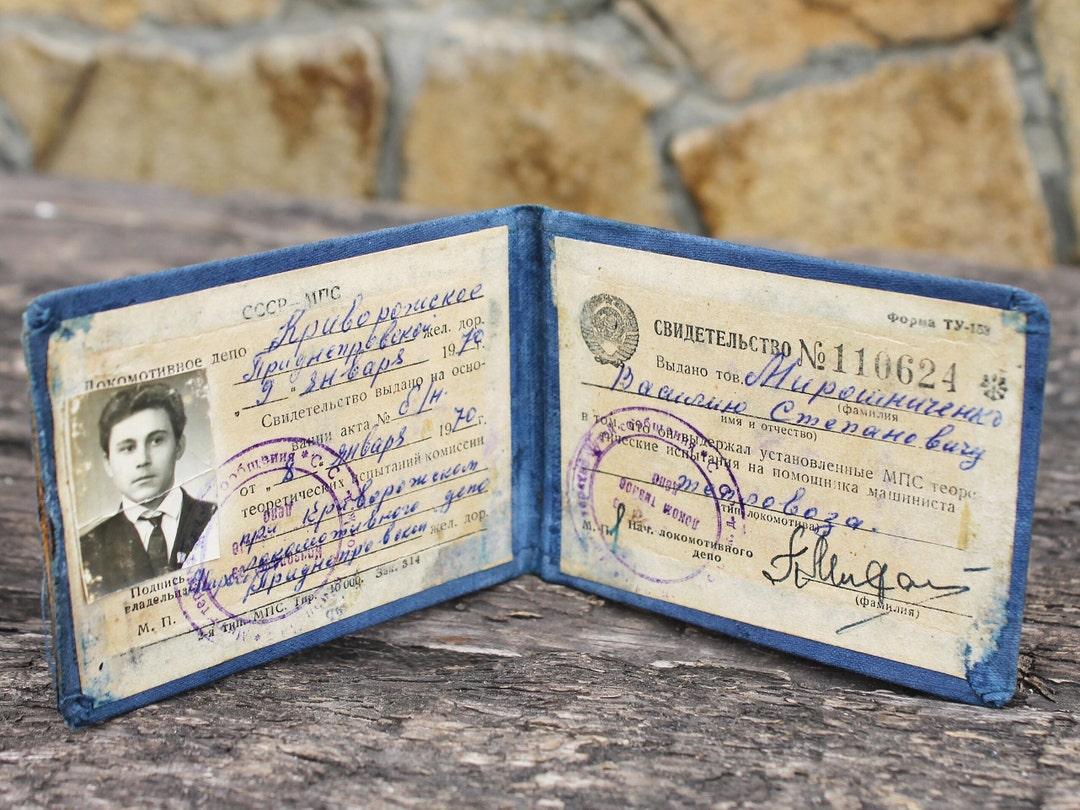 СССР – МПС
Локомотивное депо Криворожское
Приднепровской жел. дор.
„9“ января 1970
Свидетельство выдано на осно-
вании акта № б/н.
от „8“ января 1970 г.
теоретических испытаний комиссии
при Криворожском
локомотивного депо
Приднепровской жел. дор.
Подпись
владельца
М. П.
2-я тип. МПС. Тир. 10 000. Зак. 314
Форма ТУ-153
СВИДЕТЕЛЬСТВО № 110624
Выдано тов. Мирошниченко
(фамилия
Василию Степановичу
имя и отчество)
в том, что он выдержал установленные МПС теоре-
тические испытания на помощника машиниста
тепловоза.
тип локомотива
М. П. Нач. локомотивного
депо
(фамилия)